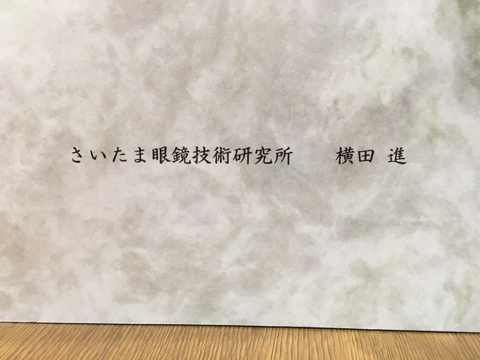 さいたま眼鏡技術研究所　　横田 進